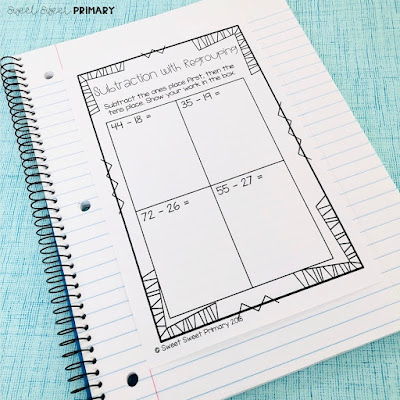 Sweet Sweet PRIMARY
Subtraction with Regrouping
Subtract the ones place first, then the
tens place. Show your work in the box.
44 - 18 =
35 - 19 =
72 - 26 =
55 - 27 =
© Sweet Sweet Primary 2018